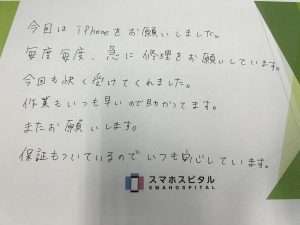 今日は iPhoneをお願いしました。
毎度毎度、急に修理をお願いしています。
今回も快く受けてくれました。
作業もいつも早いので助かってます。
またお願いします。
保証もついているのでいつも安心しています。
スマホスピタル
SMAHOSPITAL